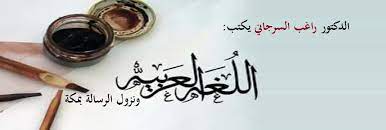 الدكتور راغب السرجاني يكتب:
اللغة العربية
ونزول الرسالة بمكة